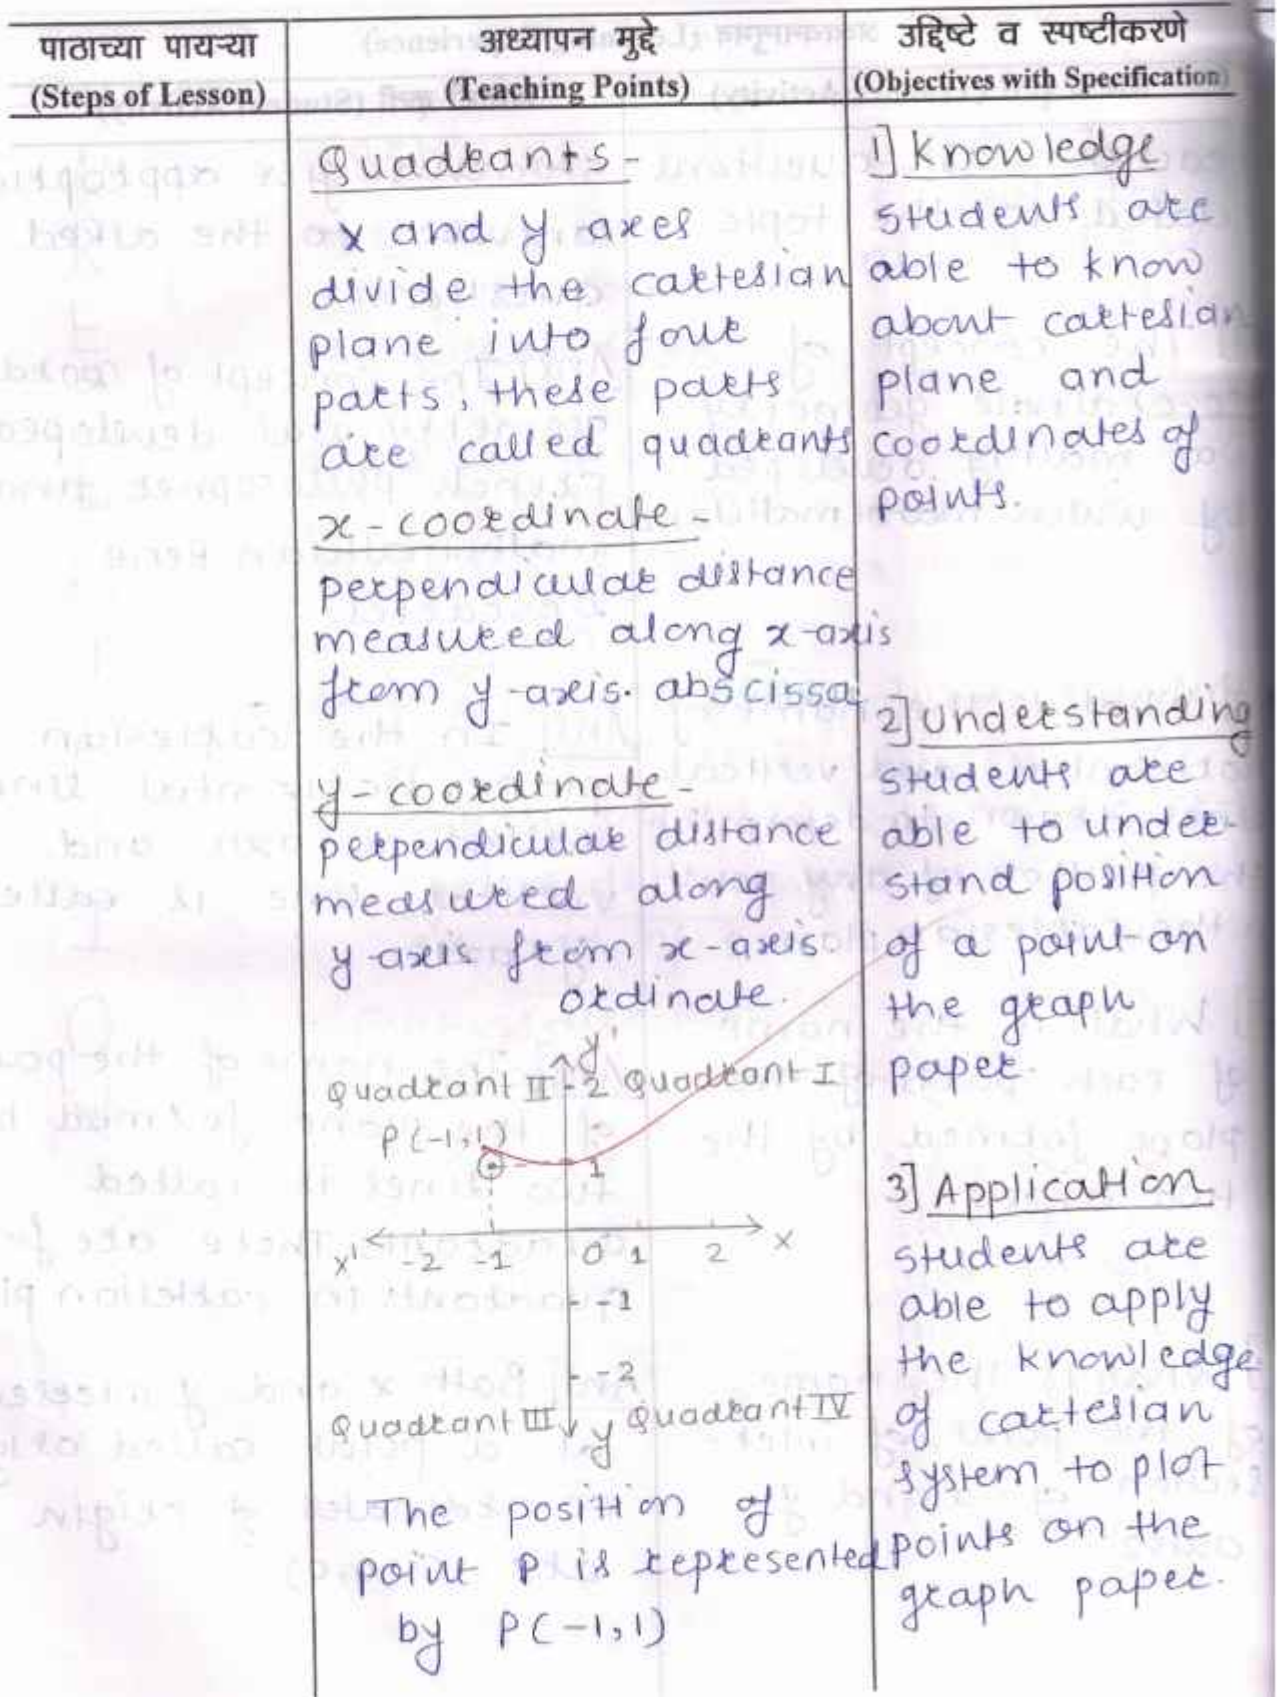 पाठाच्या पायऱ्या
(Steps of Lesson)
अध्यापन मुद्दे
(Teaching Points)
उद्दिष्टे व स्पष्टीकरणे
(Objectives with Specification)
Quadrants -
x and y axes
divide the cartesian
plane into four
parts, these parts
are called quadrants
x - coordinate -
perpendicular distance
measured along x-axis
from y-axis. abscissa
y - coordinate -
perpendicular distance
measured along
y-axis from x-axis.
ordinate.
y'
Quadrant II 2 Quadrant I
P(-1,1)
1
x' -2 -1 0 1 2 x
-1
-2
Quadrant III y Quadrant IV
The position of
point P is represented
by P(-1,1)
1] Knowledge
students are
able to know
about cartesian
plane and
coordinates of
points.
2] Understanding
students are
able to under-
stand position
of a point on
the graph
paper.
3] Application
students are
able to apply
the knowledge
of cartesian
system to plot
points on the
graph paper.